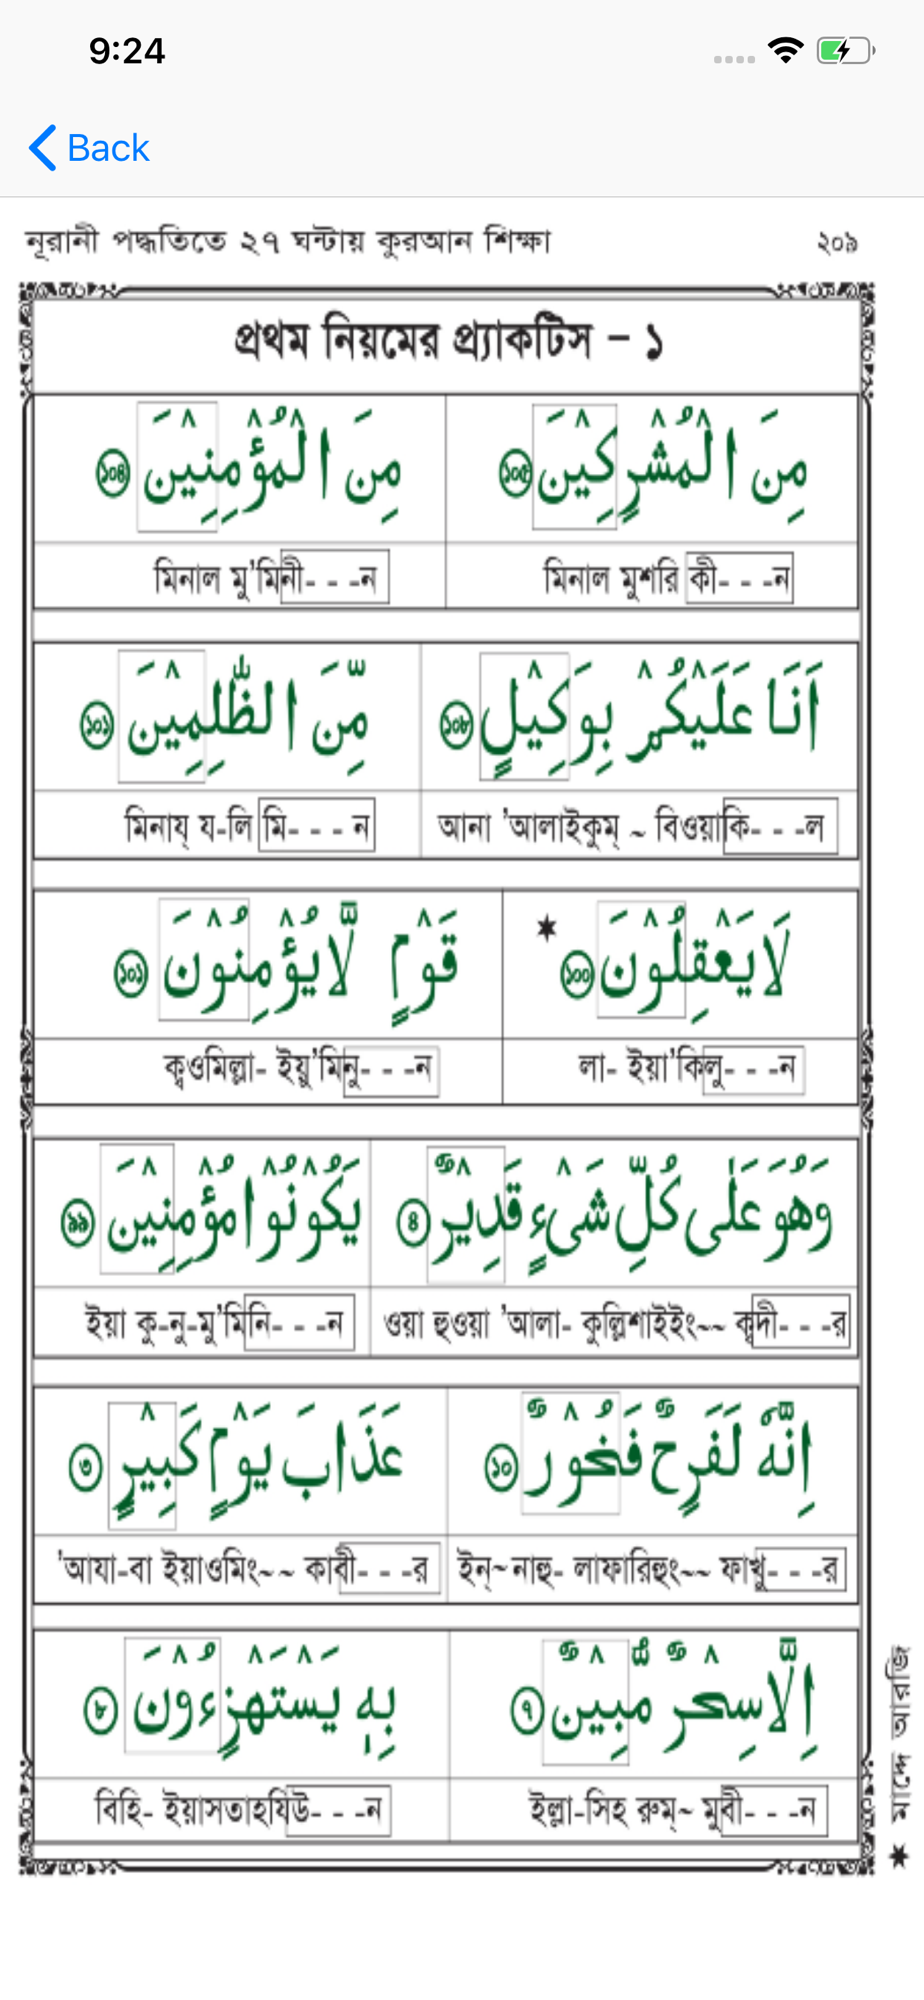 9:24
Back
নূরানী পদ্ধতিতে ২৭ ঘন্টায় কুরআন শিক্ষা ২০৯
প্রথম নিয়মের প্র্যাকটিস – ১
مِنَ الْمُشْرِكِيْنَ ১০৫ مِنَ الْمُؤْمِنِيْنَ ১০৪
মিনাল মুশরি কী- - -ন মিনাল মু'মিনী- - -ন
اَنَا عَلَيْكُمْ بِوَكِيْلٍ ১০৮ مِّنَ الظّٰلِمِيْنَ
আনা 'আলাইকুম্ ~ বিওয়াকি- - -ল মিনায্ য-লি মি- - - ন
لَا يَعْقِلُوْنَ ১০০ ★ قَوْمٍ لَّا يُؤْمِنُوْنَ ১০১
লা- ইয়া'কিলু- - -ন ক্বওমিল্লা- ইয়ু'মিনু- - -ন
وَهُوَ عَلٰى كُلِّ شَىْءٍ قَدِيْرٌ ৪ يَكُوْنُوْا مُؤْمِنِيْنَ ৯৯
ওয়া হুওয়া 'আলা- কুল্লিশাইইং~~ ক্বদী- - -র ইয়া কু-নু-মু'মিনি- - -ন
اِنَّهٗ لَفَرِحٌ فَخُوْرٌ ১০ عَذَابَ يَوْمٍ كَبِيْرٍ ৩
ইন্~নাহু- লাফারিহুং~~ ফাখু- - -র 'আযা-বা ইয়াওমিং~~ কাবী- - -র
اِلَّا سِحْرٌ مُّبِيْنٌ ৭ بِهٖ يَسْتَهْزِءُوْنَ ৮
ইল্লা-সিহ রুম্~ মুবী- - -ন বিহি- ইয়াসতাহযিউ- - -ন
★ মাদ্দে আরজি